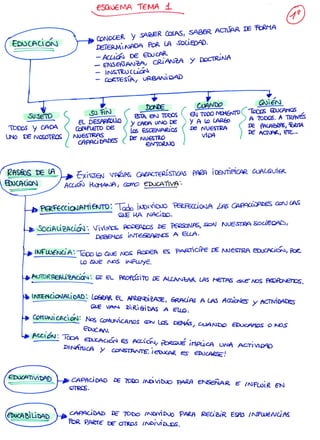 ESQUEMA TEMA 1
1º
EDUCACIÓN
CONOCER Y SABER COSAS, SABER ACTUAR DE FORMA
DETERMINADA POR LA SOCIEDAD.
- ACCIÓN DE EDUCAR
- ENSEÑANZA, CRIANZA Y DOCTRINA
- INSTRUCCIÓN
- CORTESÍA, URBANIDAD
SUJETO
TODOS Y CADA
UNO DE NOSOTROS
SU FIN
EL DESARROLLO
COMPLETO DE
NUESTRAS
CAPACIDADES
DONDE
ESTÁ EN TODOS
Y CADA UNO DE
LOS ESCENARIOS
DE NUESTRO
ENTORNO
CUANDO
EN TODO MOMENTO
Y A LO LARGO
DE NUESTRA
VIDA
QUIÉN
TODOS EDUCAMOS
A TODOS. A TRAVÉS
DE PALABRAS, FORMA
DE ACTUAR, ETC...
RASGOS DE LA
EDUCACIÓN
EXISTEN VARIAS CARACTERÍSTICAS PARA IDENTIFICAR CUALQUIER
ACCIÓN HUMANA, COMO EDUCATIVA:
PERFECCIONAMIENTO: Todo INDIVIDUO PERFECCIONA LAS CAPACIDADES CON LAS
QUE HA NACIDO.
SOCIALIZACIÓN: VIVIMOS RODEADOS DE PERSONAS, SON NUESTRA SOCIEDAD,
DEBEMOS INTEGRARNOS A ELLA.
INFLUENCIA: TODO LO QUE NOS RODEA ES PARTÍCIPE DE NUESTRA EDUCACIÓN, POR
LO QUE NOS INFLUYE.
ES EL PROPÓSITO DE ALCANZAR LAS METAS QUE NOS PROPONEMOS.
INTENCIONALIDAD: LOGRAR EL APRENDIZAJE, GRACIAS A LAS ACCIONES Y ACTIVIDADES
QUE VAN DIRIGIDAS A ELLO.
COMUNICACIÓN: NOS COMUNICAMOS CON LOS DEMÁS, CUANDO EDUCAMOS O NOS
EDUCAN.
ACCIÓN: TODA EDUCACIÓN ES ACCIÓN, PORQUE IMPLICA UNA ACTIVIDAD
DINÁMICA Y CONSTANTE. ¡EDUCAR ES EDUCARSE!
EDUCATIVIDAD
CAPACIDAD DE TODO INDIVIDUO PARA ENSEÑAR E INFLUIR EN
OTROS.
EDUCABILIDAD
CAPACIDAD DE TODO INDIVIDUO PARA RECIBIR ESAS INFLUENCIAS
POR PARTE DE OTROS INDIVIDUOS.